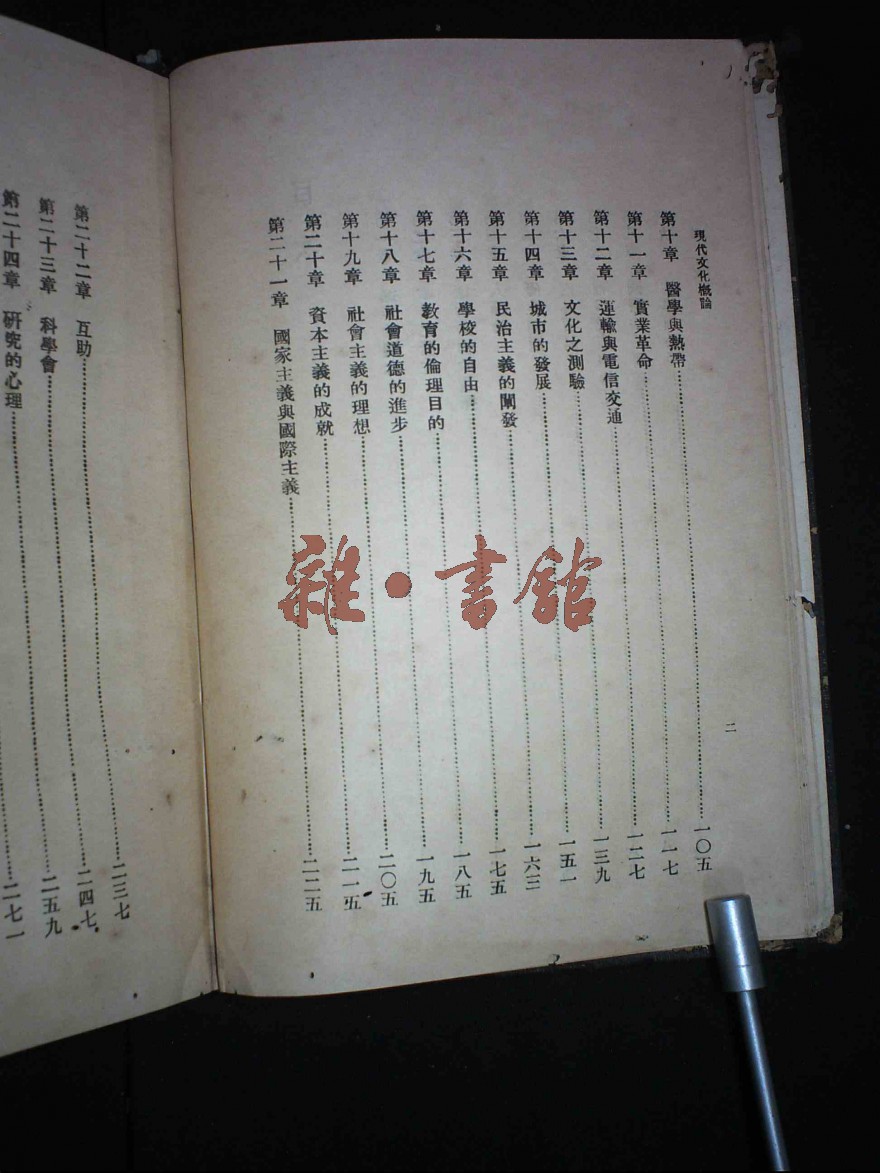 現代文化概論
二
第十章 醫學與熱帶……一〇五
第十一章 實業革命……一一七
第十二章 運輸與電信交通……一二七
第十三章 文化之測驗……一三九
第十四章 城市的發展……一五一
第十五章 民治主義的闡發……一六三
第十六章 學校的自由……一七五
第十七章 教育的倫理目的……一八五
第十八章 社會道德的進步……一九五
第十九章 社會主義的理想……二〇五
第二十章 資本主義的成就……二一五
第二十一章 國家主義與國際主義……二二五
第二十二章 互助……二三七
第二十三章 科學會……二四七
第二十四章 研究的心理……二五九
二七一
雜·書館